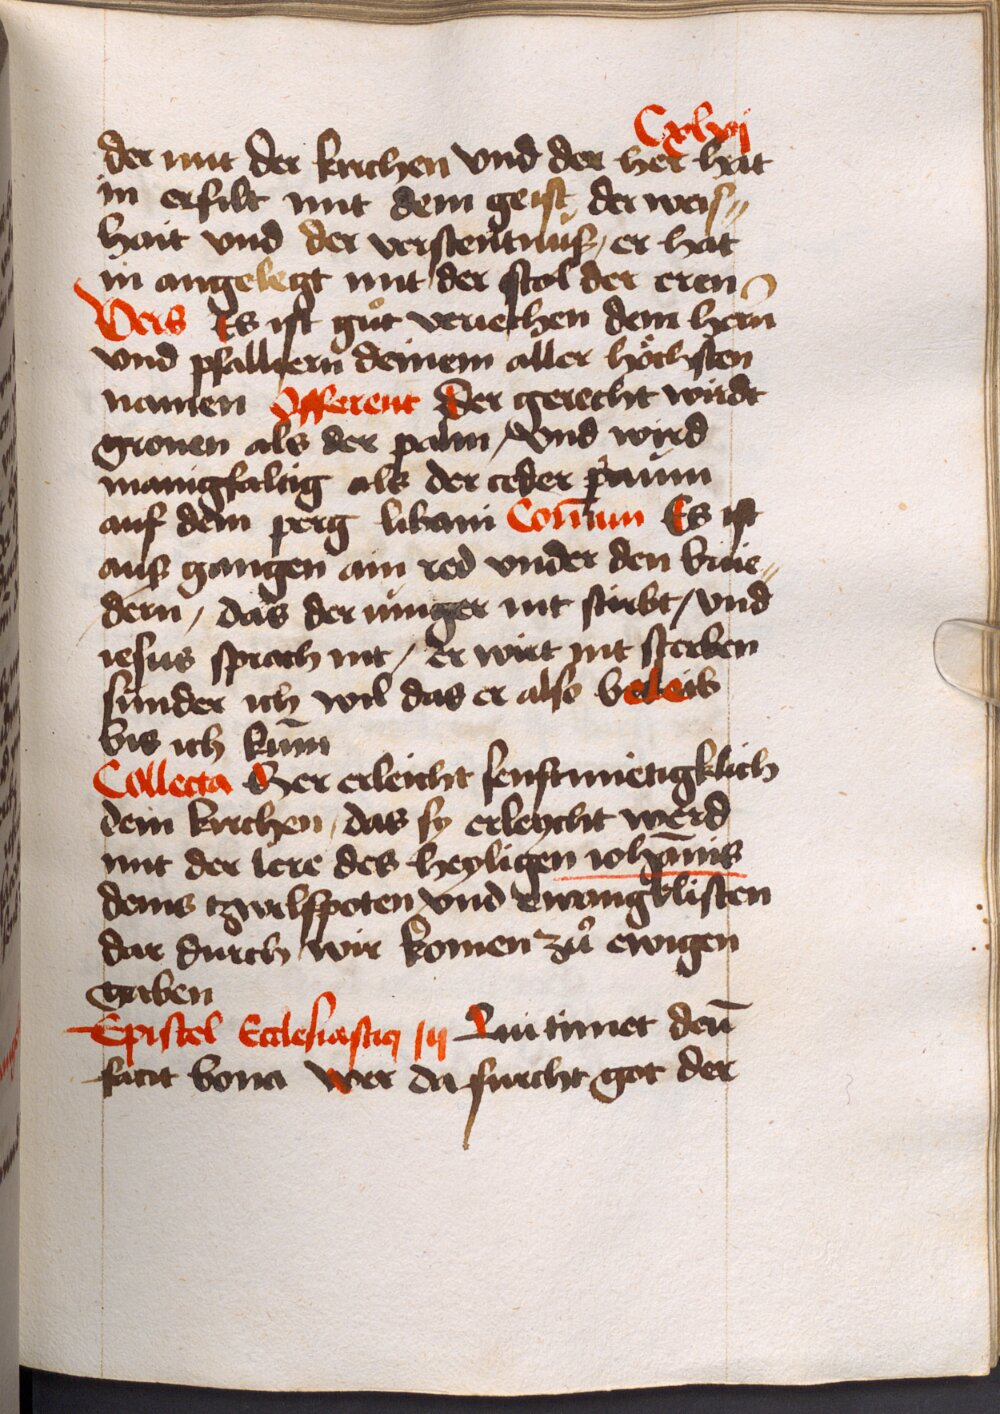 Cxlvj
der mit der kirchen vnd der her hat
in erfilt mit dem geist der weis„
hait vnd der verstentnuß, er hat
in angelegt mit der stol der eren
Vers Es ist gůt veriechen dem hern̄
vnd psallieren deinem aller höchsten
namen Offerent Der gerecht wirdt
gronen als der palm, Vnd wird
manigfaltig als der ceder paum
auf dem perg libani Com̄un Es ist
auß gangen ain red vnder den brue„
dern, das der iunger nit stirbt, vnd
iesus sprach nit, er wirt nit sterben
sunder ich wil das er also beleib
bis ich kum̄
Collecta Her erleicht senftmietigklich
dein kirchen, das sy erleycht werd
mit der lere des heyligen ioha̅nnis
deins tzwelfpoten vnd ewangklisten
dar durch wir komen zů ewigen
gaben
Epistel Ecclesiastici Qui timet deu̅
facit bona Wer da furcht got der